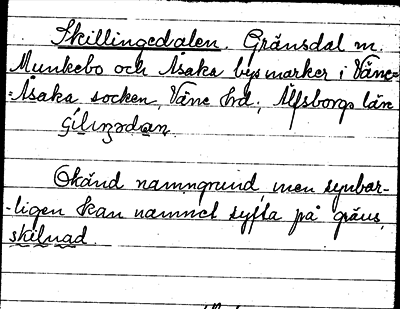 Skillingedalen. Gränsdal m.
Munkebo och Åsaka bys marker i Väne-
-Åsaka socken, Väne hd, Älfsborgs län
Okänd namngrund, men synbar-
-ligen kan namnet syfta på gräns,
skilnad.